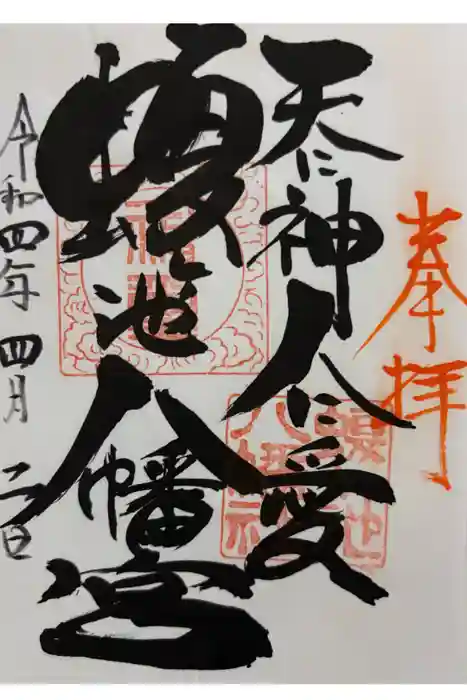 奉拝
天に神人に愛
蝮ヶ池八幡宮
令和四年四月二日